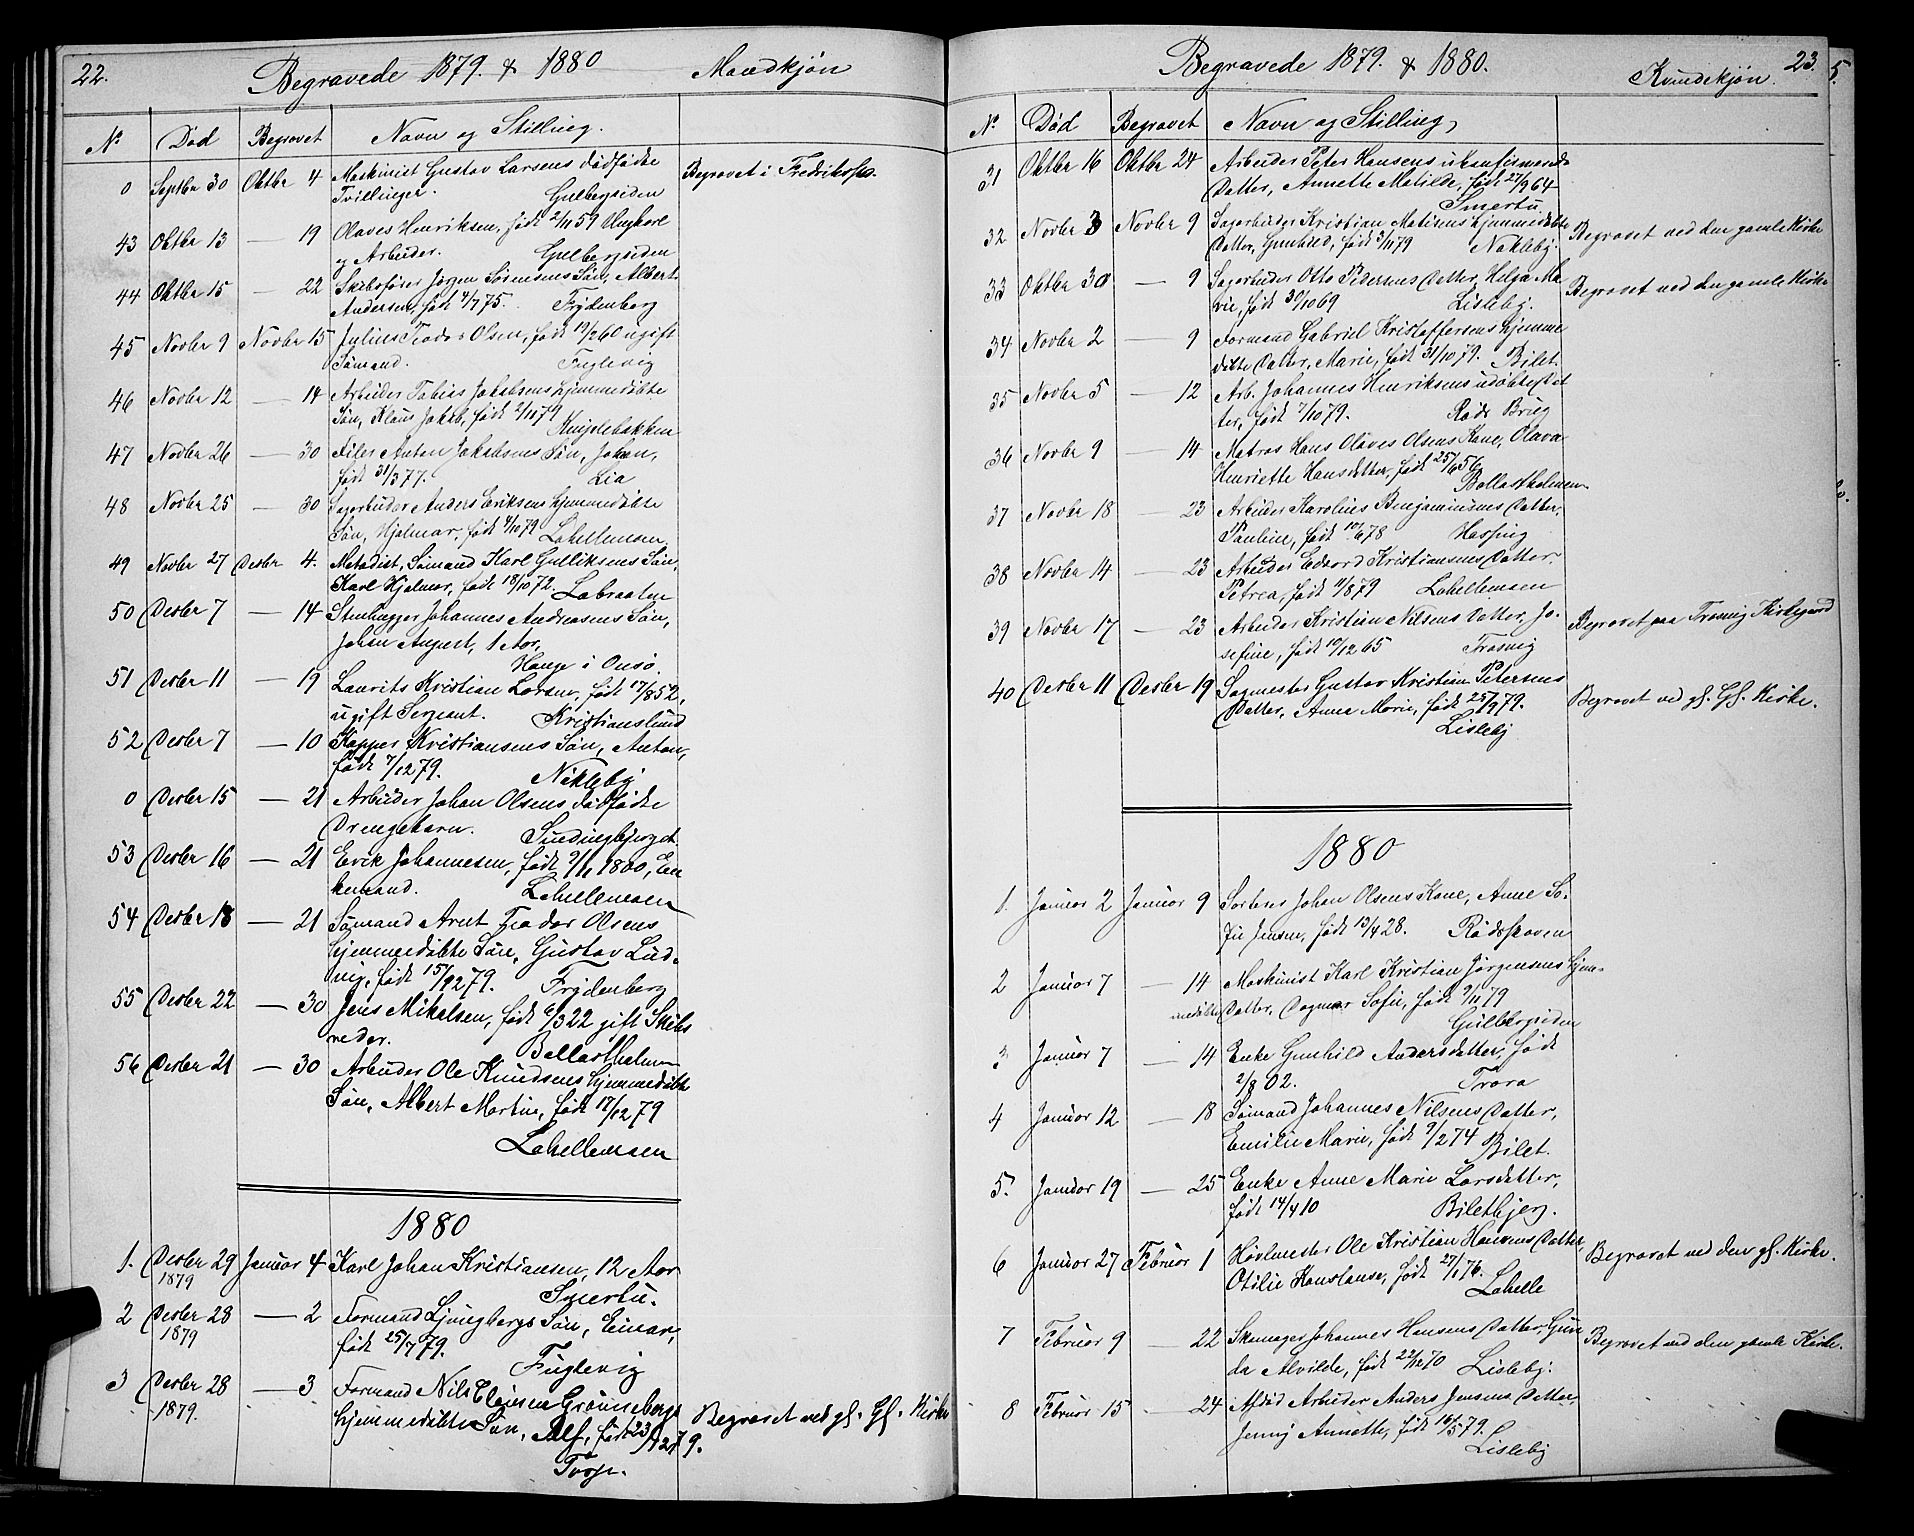 22.
Begravede 1879. & 1880
Mandkjøn
No Død Begravet Navn og Stilling.
0 Septbr 30 Oktbr 4 Maskinist Gustav Larsens dødfødte
Tvillinger. Gulbergsiden
Begravet i Fredriksst.
43 Oktbr 13 — 19 Olaves Henriksen, født 2/11 59 Ungkarl
og Arbeider. Gulbergsiden
44 Oktbr 15 — 22 Skibsfører Jørgen Sørensens Søn, Albert
Andersen, født 4/7 75. Frydenberg
45 Novbr 9 Novbr 15 Julius Teodor Olsen, født 19/2 60 ugift
Sømand. Fuglevig
46 Novbr 12 — 14 Arbeider Tobias Jakobsens hjemmedøbte
Søn, Klaus Jakob, født 2/11 79
Kniplebakken
47 Novbr 26 — 30 Filer Anton Jakobsens Søn, Johan,
født 31/3 77. Lia
48 Novbr 25 — 30 Sagarbeider Anders Eriksens hjemmedøbte
Søn, Hjalmar, født 4/10 79 Lahellemoen
49 Novbr 27 Desbr 4. Metodist, Sømand Karl Gulliksens Søn,
Karl Hjalmar, født 18/10 72. Labraaten
50 Desbr 7 — 14 Stenhugger Johannes Andreasens Søn,
Johan August, 1 Aar,
Hauge i Onsø.
51 Desbr 11 — 19 Laurits Kristian Larsen, født 17/8 52,
ugift Sergeant. Kristianslund
52 Desbr 7 — 10 Kristiansens Søn, Anton,
født 7/12 79. Nikleby
0 Desbr 15 — 21 Arbeider Johan Olsens dødfødte
Drengebarn.
53 Desbr 16 — 21 Erik Johannesen, født 9/11 1800, En
kemand. Lahellemoen
54 Desbr 18 — 21 Sømand Arnt Teodor Olsens
hjemmedøbte Søn, Gustav Lud-
vig, født 15/12 79. Frydenberg
55 Desbr 22 — 30 Jens Mikalsen, født 6/3 22 gift Skibs
reder. Ballastholmen
56 Desbr 21 — 30 Arbeider Ole Knudsens hjemmedøbte
Søn, Albert Martin, født 17/12 79
Lahellemoen
1880
1. Desbr 29 Januar 4 Karl Johan Kristiansen, 12 Aar
1879 Smertu.
2 Desbr 28 — 2 Formand Ljungbergs Søn, Einar,
1879 født 25/7 79.
Fuglevig
3 Desbr 28 — 3 Formand Nils Grønnebergs
1879. hjemmedøbte Søn, Alf, født 23/12 79.
Begravet ved gl. Gl. Kirke
Torp.
Begravede 1879. & 1880.
Kvindekjøn.
23.
5.
No Død Begravet Navn og Stilling,
31 Oktbr 16 Oktbr 24 Arbeider Peter Hansens ukonfirmerede
Datter, Annette Matilde, født 27/9 64
Smertu
32 Novbr 3 Novbr 9 Sagarbeider Kristian Matisens hjemmedøbte
Datter, Gunhild, født 3/11 79 Nakleby.
Begravet ved den gamle Kirke
33 Oktbr 30 — 9 Sagarbeider Otto Pedersens Datter, Helga Ma-
rie, født 30/10 69 Lisleby.
Begravet ved den gamle Kirke
34 Novbr 2 — 9 Formand Gabriel Kristoffersens hjemme
døbte Datter, Marie, født 31/10 79. Bilet.
35 Novbr 5 — 12 Arb. Johannes Henriksens udøbte Dat
ter, født 7/10 79. Røds Brug
36 Novbr 9 — 14 Matros Hans Olaves Olsens Kone, Olava
Henriette Hansdatter, født 25/6 56
Ballastholmen
37 Novbr 18 — 23 Arbeider Karolius Benjaminsens Datter,
Pauline, født 10/6 78 Hassing
38 Novbr 14 — 23 Arbeider Edvard Kristiansens Datter,
Petrea, født 11/8 79 Lahellemoen
39 Novbr 17 — 23 Arbeider Kristian Nilsens Datter, Jo-
sefine, født 10/12 65 Trosvig
Begravet paa Trosvig Kirkegaard
40 Desbr 11 Desbr 19 Sagmester Gustav Kristian Petersens
Datter, Anna Marie, født 25/9 79.
Lisleby
Begravet ved gl. Gl. Kirke.
1880
1. Januar 2 Januar 9 Johan Olsens Kone, Anne So-
fie Jensen, født 13/4 28. Rødsskoven
2 Januar 7 — 14 Maskinist Karl Kristian Jørgensens hjem-
medøbte Datter, Dagmar Sofie, født 9/11 79
Gulbergsiden
3 Januar 7 — 14 Enke Gunhild Andersdatter, født
2/8 02. Trara
4 Januar 12 — 18 Sømand Johannes Nilsens Datter,
Emilie Marie, født 9/2 74 Bilet.
5. Januar 19 — 25 Enke Anne Marie Larsdatter,
født 14/4 10 Biletbjerg.
6 Januar 27 Februar 1 Høvlmester Ole Kristian Hansens Datter,
Otilie Konstanse, født 27/1 76. Lahelle
Begravet ved den gl. Kirke.
7 Februar 9 — 22 Skomager Johannes Hansens Datter, Gun
da Alvilde, født 22/12 70 Lisleby.
Begravet ved den gamle Kirke.
8 Februar 15 — 24 Afdød Arbeider Anders Jensens Datter,
Jenny Annette, født 16/5 79.
Lisleby